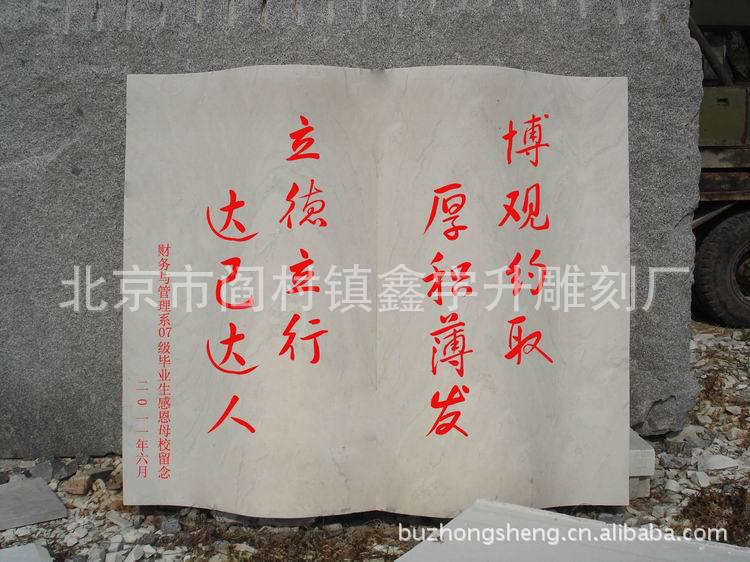 博观约取
厚积薄发
立德立行
达己达人
财务与管理系07级毕业生感恩母校留念
二0一一年六月
北京市阎村镇鑫宇升雕刻厂
buzhongsheng.cn.alibaba.com